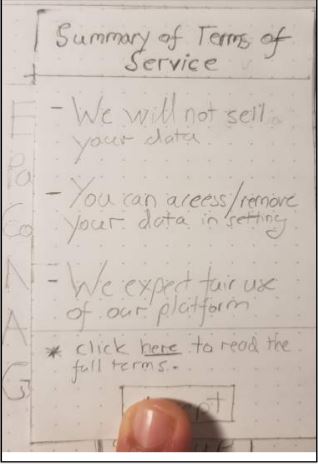 Summary of Terms of
Service
- We will not sell
your data
- You can access/remove
your data in setting
- We expect fair use
of our platform
* click here to read the
full terms.
E
Pa
Co
N
A
G